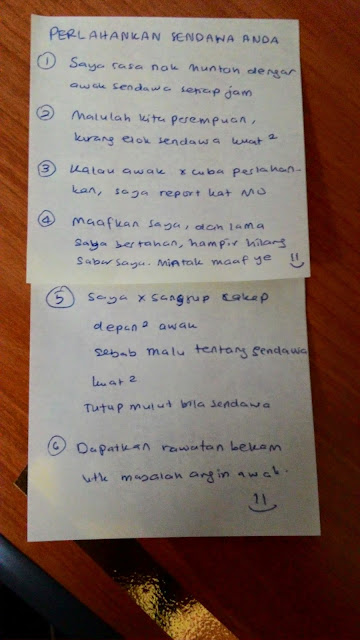 PERLAHANKAN SENDAWA ANDA
① Saya rasa nak muntah dengar
awak sendawa setiap jam
② Malulah kita perempuan,
kurang elok sendawa kuat²
③ Kalau awak x cuba perlahan-
kan, saya report kat MO
④ Maafkan saya, dah lama
saya bertahan, hampir hilang
sabar saya. Mintak maaf ye
⑤ Saya x sanggup cakap
depan² awak
sebab malu tentang sendawa
kuat²
Tutup mulut bila sendawa
⑥ Dapatkan rawatan bekam
utk masalah angin awak.